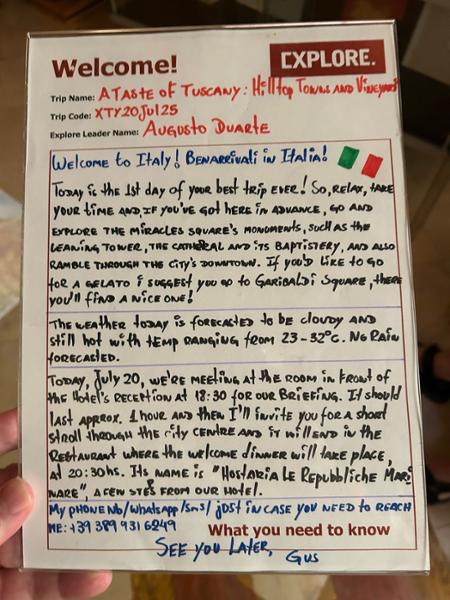 Welcome!
EXPLORE.
Trip Name: A TASTE OF TUSCANY: HILLTOP TOWNS AND VINEYARD
Trip Code: XTY20JUL25
Explore Leader Name: AUGUSTO DUARTE
WELCOME TO ITALY! BENARRIVATI IN ITALIA!
TODAY IS THE 1st DAY OF YOUR BEST TRIP EVER! SO, RELAX, TAKE
YOUR TIME AND, IF YOU'VE GOT HERE IN ADVANCE, GO AND
EXPLORE THE MIRACLES SQUARE'S MONUMENTS, SUCH AS THE
LEANING TOWER, THE CATHEDRAL AND ITS BAPTISTERY, AND ALSO
RAMBLE THROUGH THE CITY'S DOWNTOWN. IF YOU'D LIKE TO GO
FOR A GELATO I SUGGEST YOU GO TO GARIBALDI SQUARE, THERE
YOU'LL FIND A NICE ONE!
THE WEATHER TODAY IS FORECASTED TO BE CLOUDY AND
STILL HOT WITH TEMP RANGING FROM 23-32°C. NO RAIN
FORECASTED.
TODAY, JULY 20, WE'RE MEETING AT THE ROOM IN FRONT OF
THE HOTEL'S RECEPTION AT 18:30 FOR OUR BRIEFING. IT SHOULD
LAST APPROX. 1 HOUR AND THEN I'LL INVITE YOU FOR A SHORT
STROLL THROUGH THE CITY CENTRE AND IT WILL END IN THE
RESTAURANT WHERE THE WELCOME DINNER WILL TAKE PLACE,
AT 20:30HS. ITS NAME IS "HOSTARIA LE REPUBBLICHE MARI
NARE", A FEW STEPS FROM OUR HOTEL.
MY PHONE Nb/WHATSAPP/SMS/JUST IN CASE YOU NEED TO REACH
ME: +39 389 931 6249
What you need to know
SEE YOU LATER,
GUS